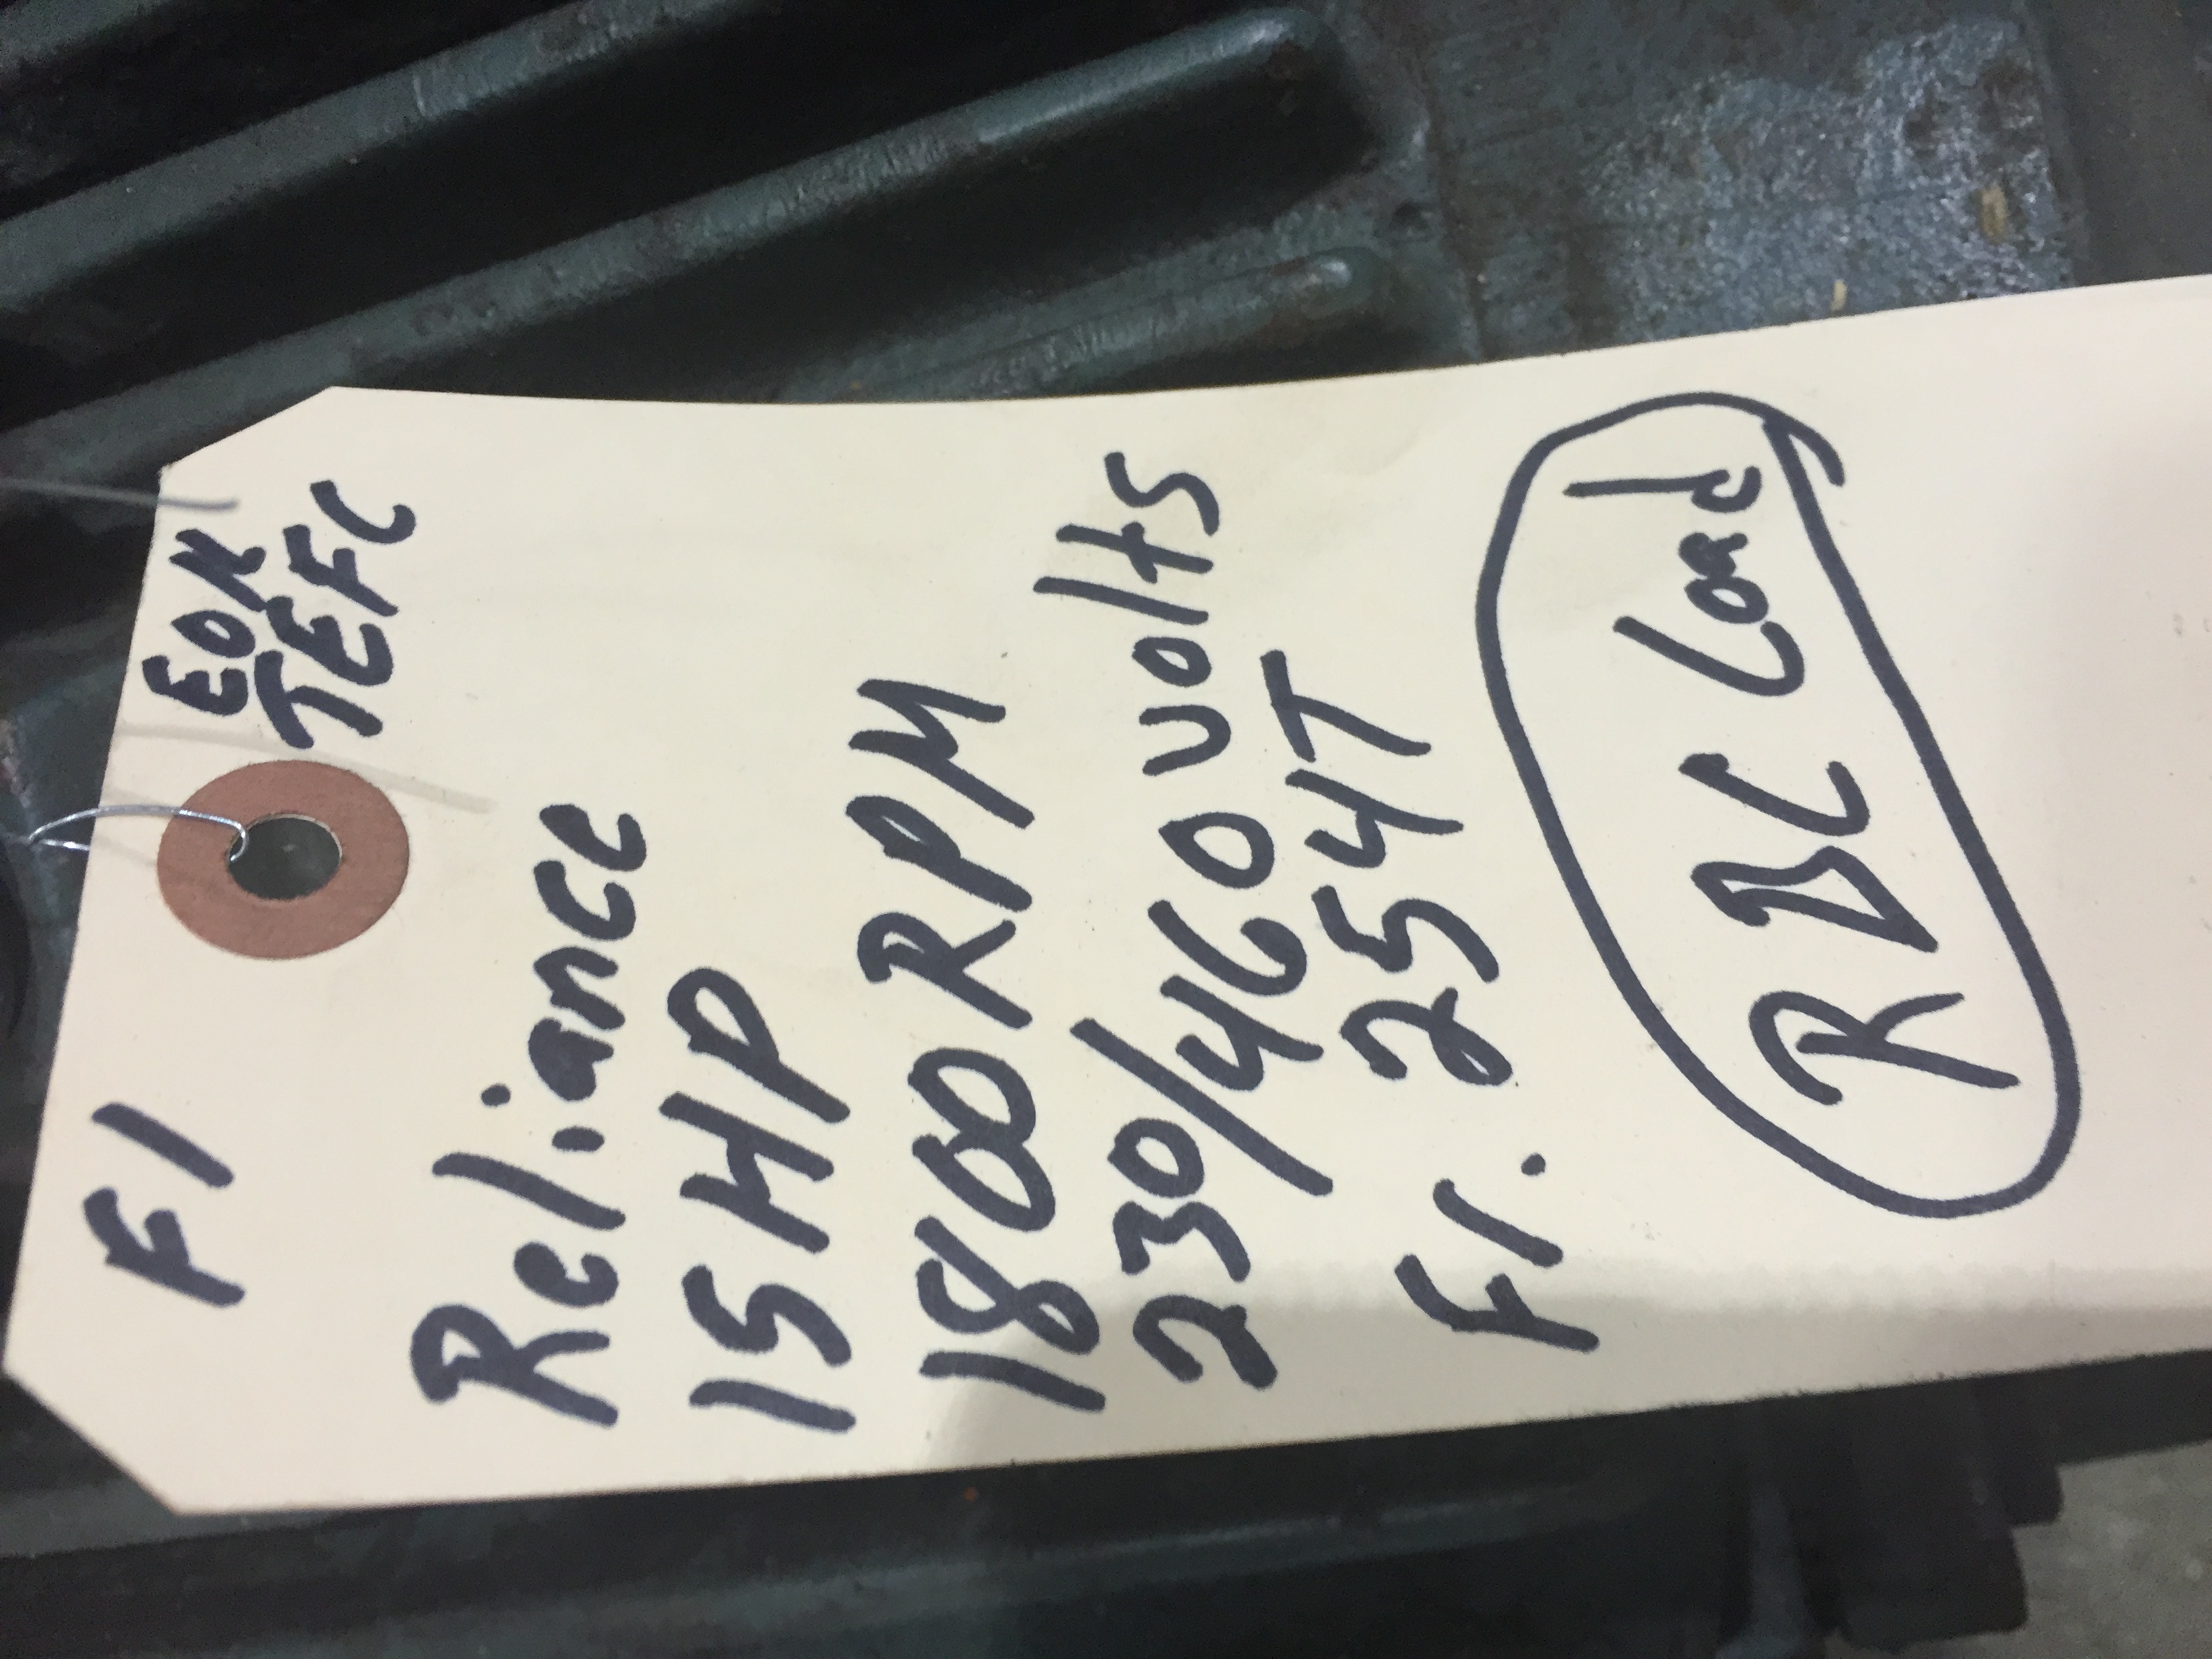 F1
EOK
TEFC
Reliance
15 HP
1800 RPM
230/460 volts
Fr. 254T
RDC Cord